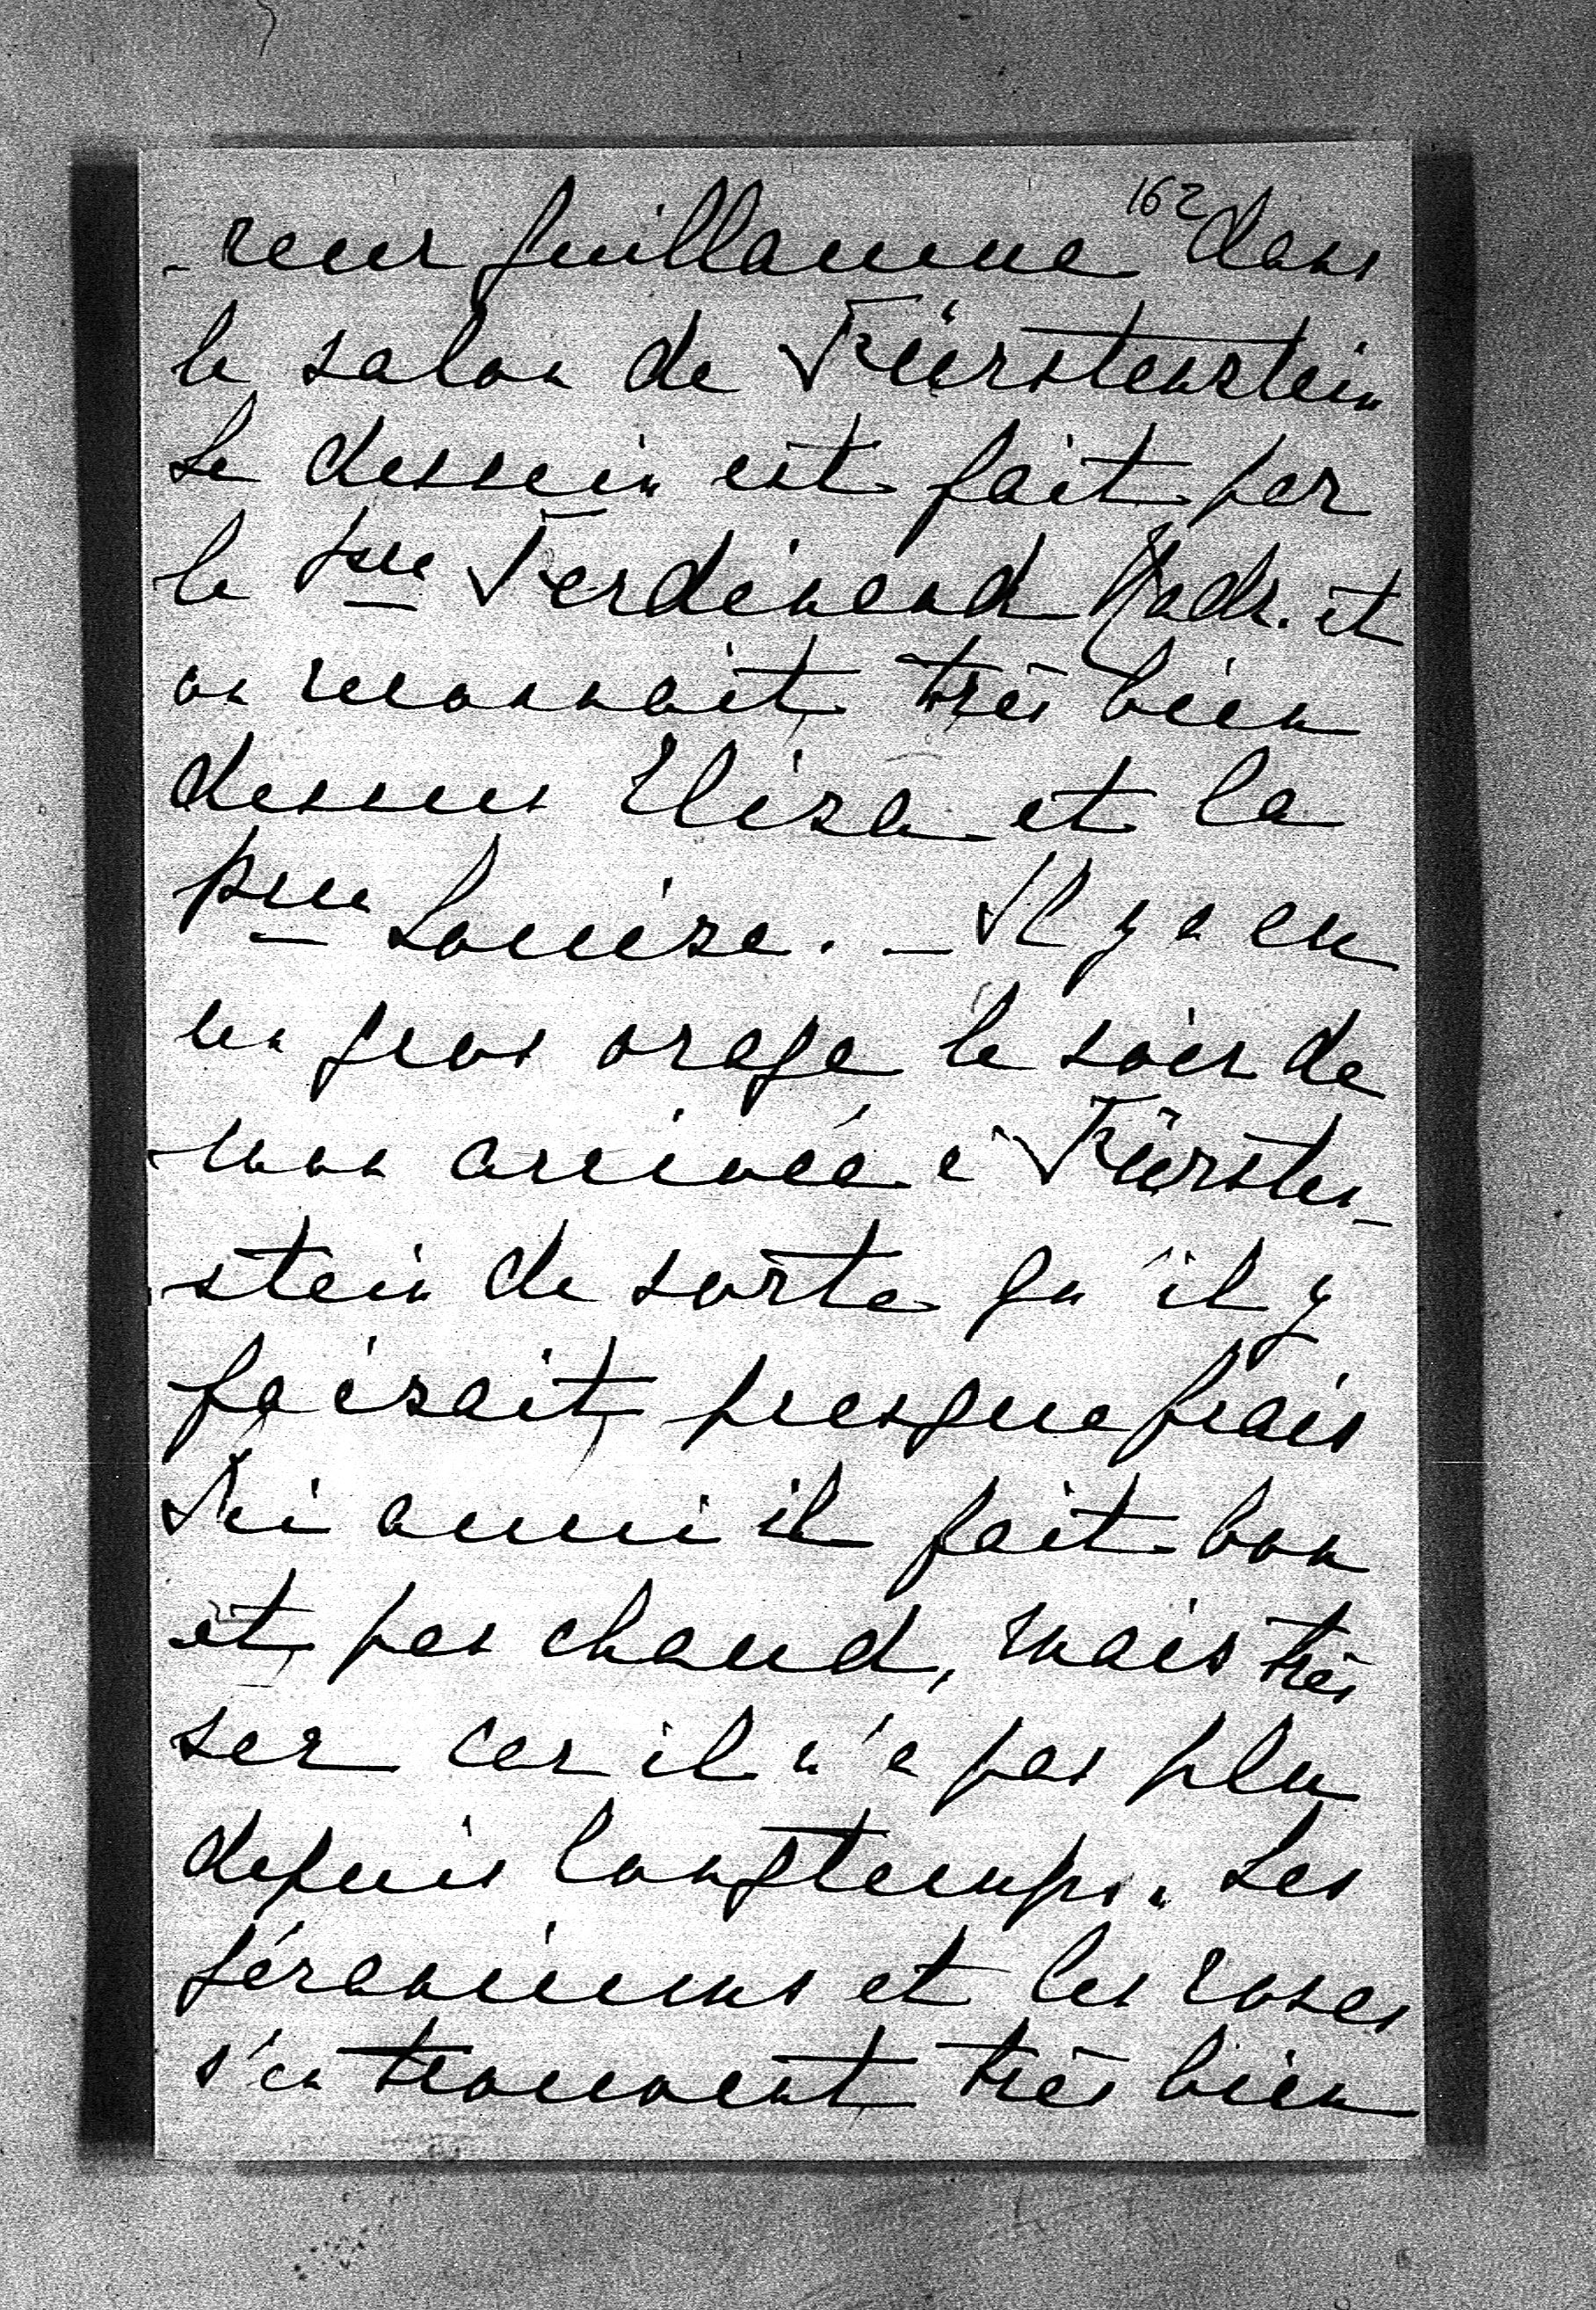 162
-reur Guillaume dans
le salon de Fürstenstein
Le dessein est fait par
le Pce Ferdinand Radz. et
on reconnait très bien
dessus Elisa et la
Psse Louise. – Il y a eu
un gros orage le soir de
mon arrivée à Fürsten-
stein de sorte qu'il y
faisait presque frais
Ici aussi il fait bon
et pas chaud, mais très
sec car il n'a pas plu
depuis longtemps. Les
géraniums et les roses
s'en trouvent très bien